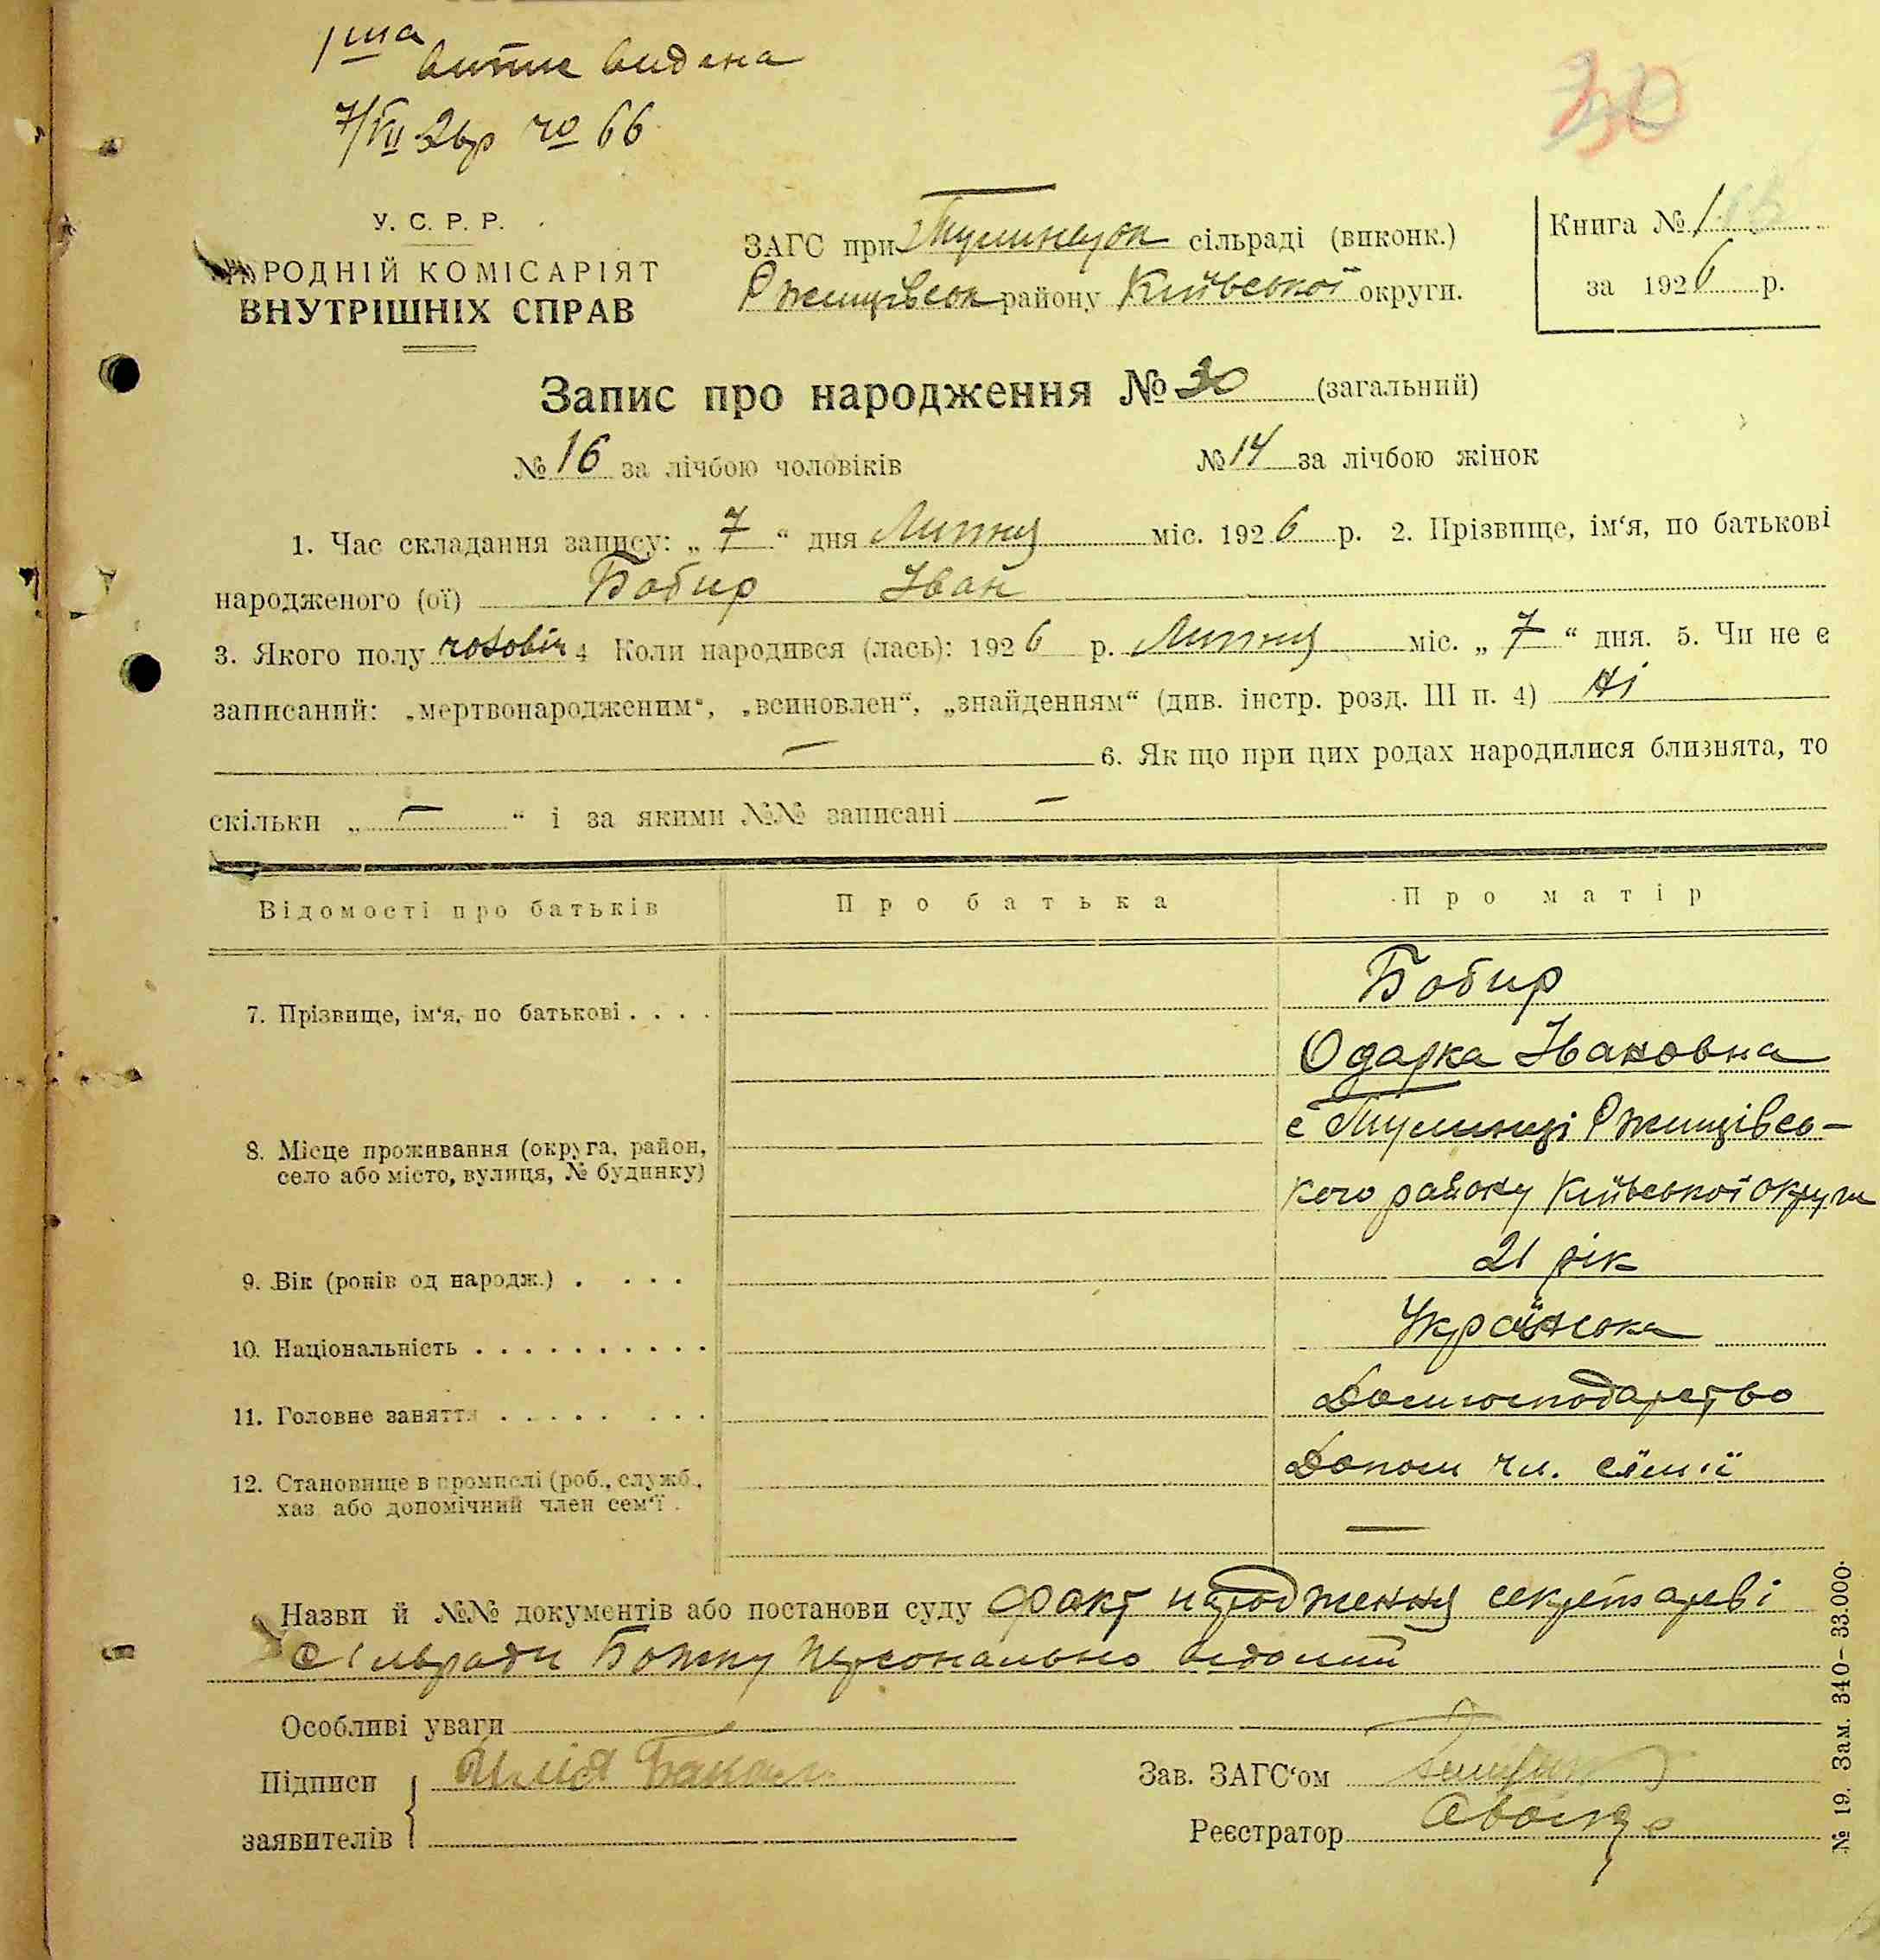 1ша
витис видана
7/VII 26р чо 66
30
У. С. Р. Р.
НАРОДНІЙ КОМІСАРІЯТ
ВНУТРІШНІХ СПРАВ
ЗАГС при Тулинецок сільраді (виконк.)
Ржищівсок району Київської округи.
Книга № 1
за 1926 р.
Запис про народження № 30 (загальний)
№ 16 за лічбою чоловіків № 14 за лічбою жінок
1. Час складання запису: „ 7 “ дня Липня міс. 1926 р. 2. Прізвище, ім‘я, по батькові
народженого (ої) Бобир Іван
3. Якого полу чоловіч 4 Коли народився (лась): 1926 р. Липня міс. „ 7 “ дня. 5. Чи не є
записаний: „мертвонародженим“, „всиновлен“, „знайденням“ (див. інстр. розд. III п. 4) Ні
— 6. Як що при цих родах народилися близнята, то
скільки „ — “ і за якими №№ записані —
Відомості про батьків Про батька Про матір
7. Прізвище, ім‘я, по батькові . . . . Бобир
Одарка Івановна
8. Місце проживання (округа, район, с Тулинці Ржищівсь-
село або місто, вулиця, № будинку) кого району Київської округи
9. Вік (років од народж.) . . . . 21 рік
10. Національність . . . . . . . . . . Українська
11. Головне заняття . . . . . . . . Домгосподарство
12. Становище в промислі (роб., служб., Допом чл. сімії
хаз або допомічний член сем‘ї . —
Назви й №№ документів або постанови суду Факт народження секретареві
сільради Божку персонально відомий
Особливі уваги
Підписи Илія Зав. ЗАГС‘ом
заявителів Реєстратор
№ 19. Зам. 340—33.000.